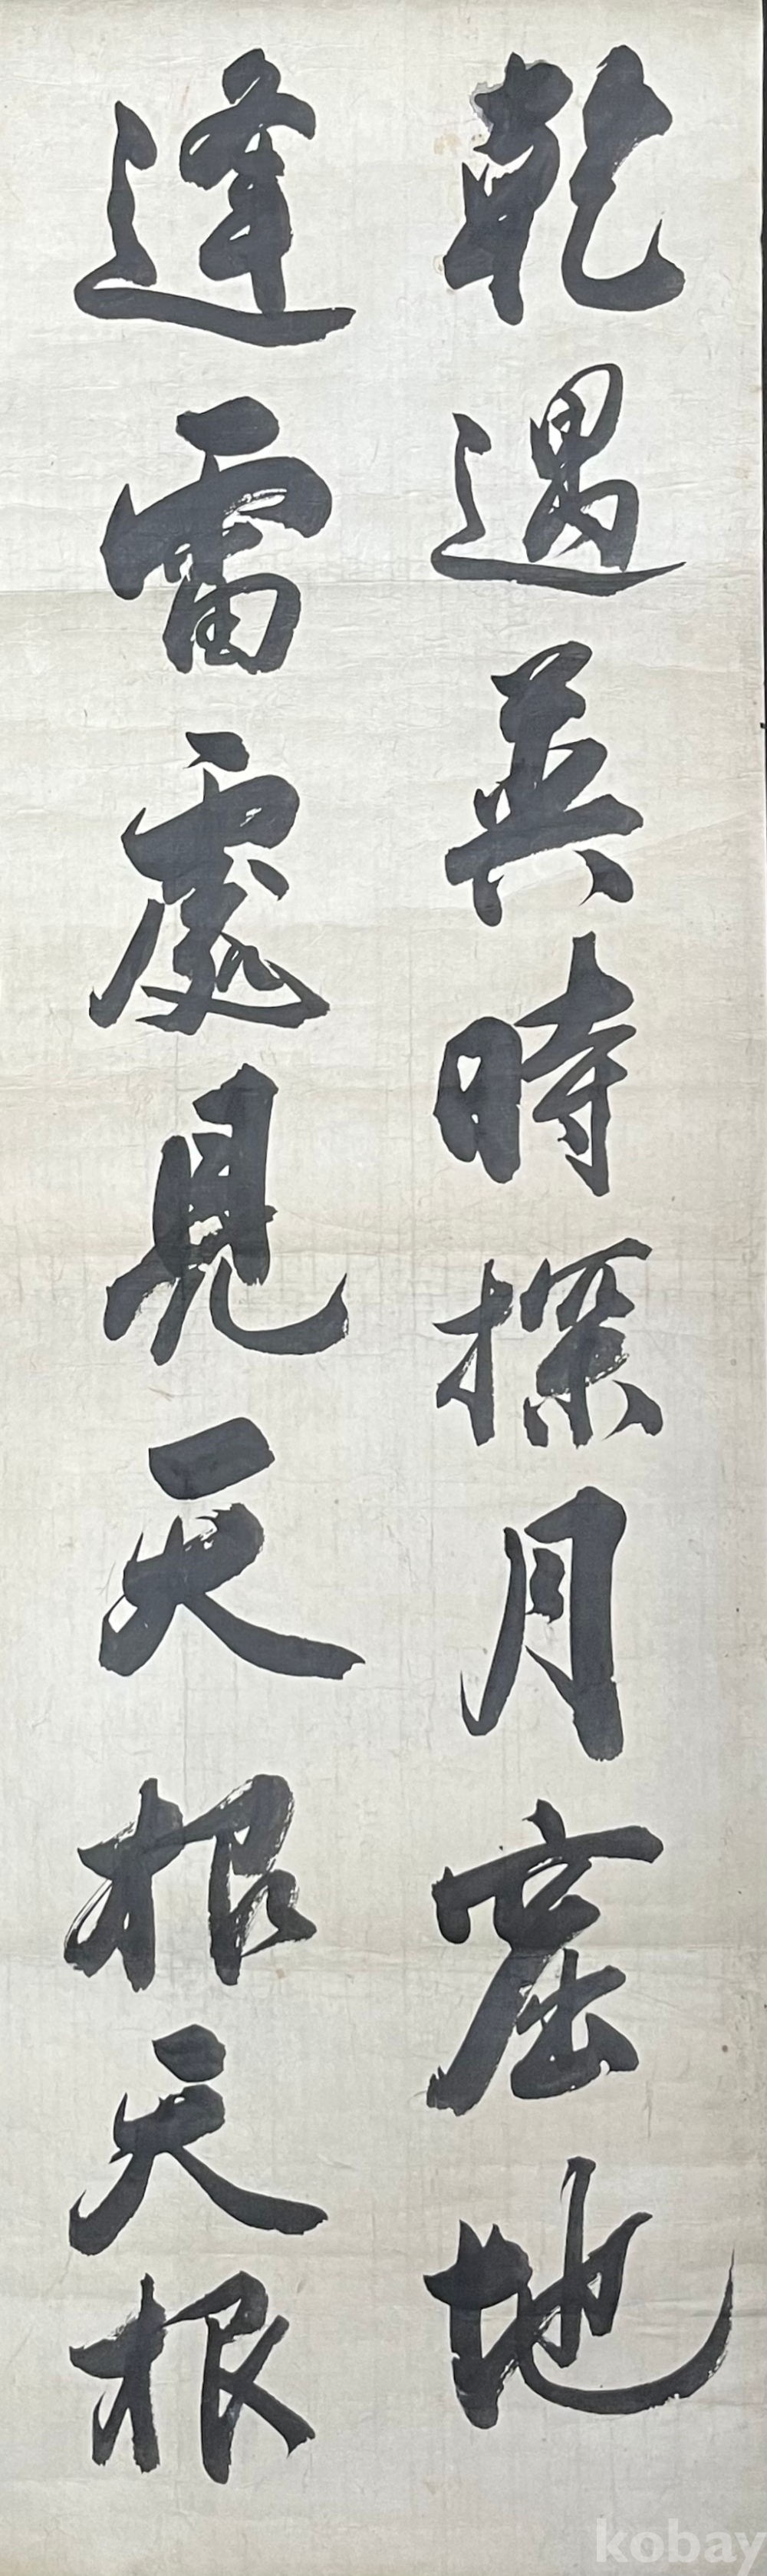 乾遇巽時探月窟地
逢雷處見天根天根
kobay